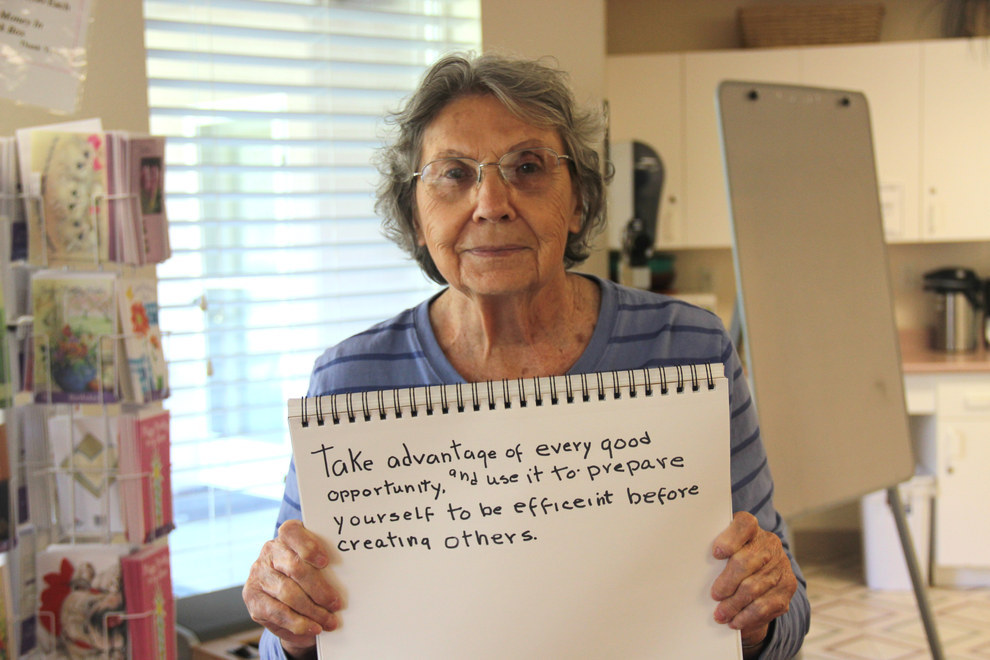 Take advantage of every good
opportunity, and use it to prepare
yourself to be efficeint before
creating others.